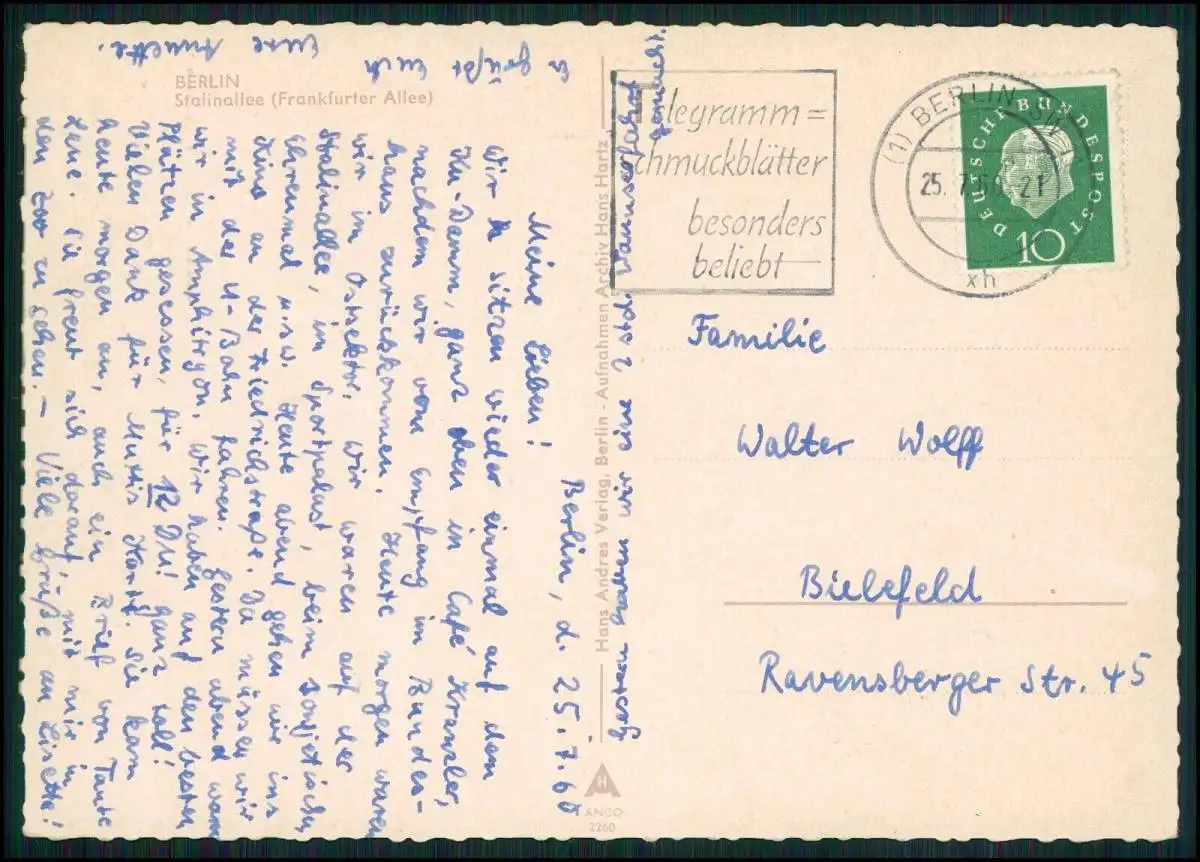 BERLIN
Stalinallee (Frankfurter Allee)
Berlin, d. 25.7.60
Meine Lieben!
Wir sitzen wieder einmal auf dem
Ku-Damm, ganz oben in Café Kranzler,
nachdem wir vom Empfang im Bundes-
haus zurückkommen. Heute morgen waren
wir in Ostsektor, wir waren auf der
Stalinallee, im Sportpalast, beim Sowjetischen
Ehrenmal usw. Heute abend gehen wir ins
Kino an der Friedrichstraße. Da müssen wir
mit der U-Bahn fahren. Gestern abend waren
wir in Amphitryon, wir haben auf den besten
Plätzen gesessen, für 12 DM! Ganz toll!
Vielen Dank für Muttis Karte. Sie kam
heute morgen an, auch ein Brief von Tante
Lene. Sie freut sich darauf, mit mir in
den Zoo zu gehen. – Viele Grüße an Lisette!
Es grüßt Euch
Eure Annette.
Gestern hatten wir eine 2 std. Wannseefahrt
gemacht.
Hans Andres Verlag, Berlin - Aufnahmen Archiv Hans Hartz
H
ANCO
2260
Telegramm=
schmuckblätter
besonders
beliebt
(1) BERLIN SW
25. 7.60. 21
xh
DEUTSCHE BUNDESPOST
10
Familie
Walter Wolff
Bielefeld
Ravensberger Str. 45